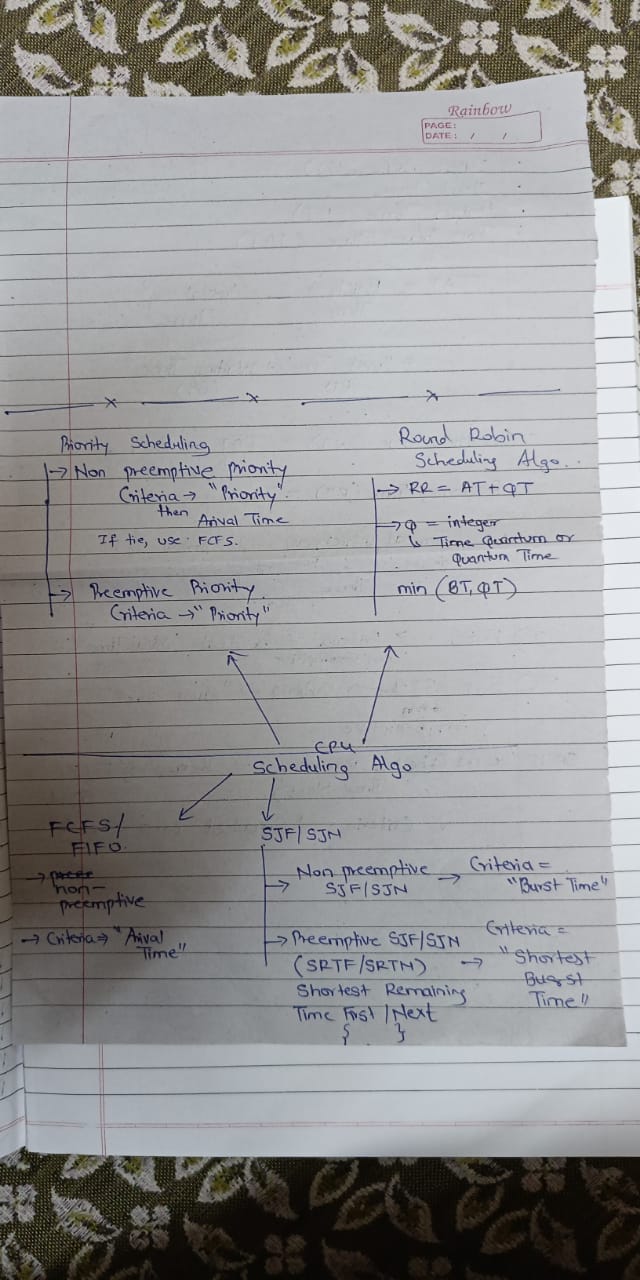 Rainbow
PAGE:
DATE: / /
Priority Scheduling
→ Non preemptive priority
Criteria → "Priority"
then
Arival Time
If tie, use FCFS.
→ Preemptive Priority
Criteria → "Priority"
Round Robin
Scheduling Algo.
→ RR = AT + QT
→ Q = integer
↳ Time Quantum or
Quantum Time
min (BT, QT)
CPU
Scheduling Algo
FCFS/
FIFO
→
non-
preemptive
→ Criteria → "Arival
Time"
SJF/SJN
→ Non preemptive → Criteria =
SJF/SJN "Burst Time"
→ Preemptive SJF/SJN Criteria =
(SRTF/SRTN) → "Shortest
Shortest Remaining Burst
Time First/Next Time"